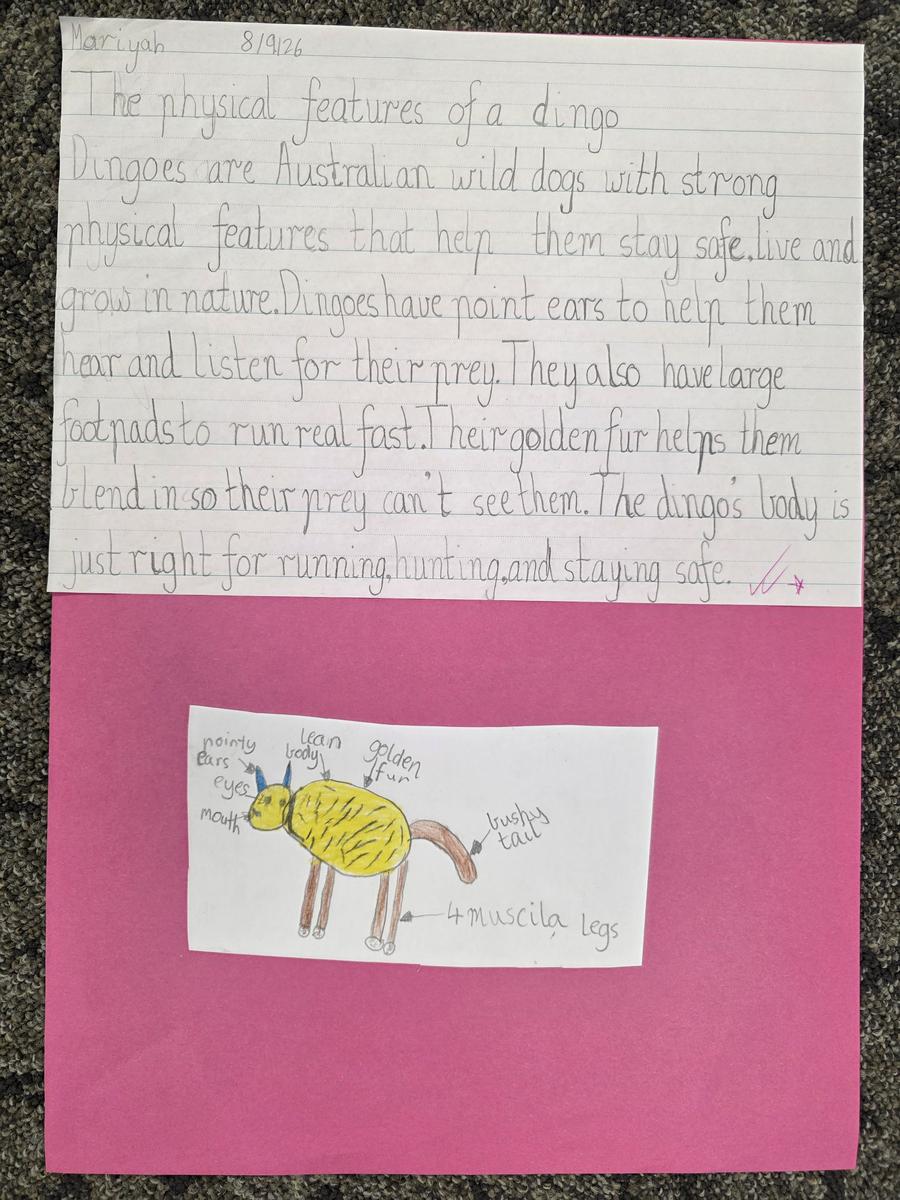 Mariyah 8/9/26
The physical features of a dingo
Dingoes are Australian wild dogs with strong
physical features that help them stay safe, live and
grow in nature. Dingoes have point ears to help them
hear and listen for their prey. They also have large
footpads to run real fast. Their golden fur helps them
blend in so their prey can't see them. The dingo's body is
just right for running, hunting, and staying safe.
pointy
ears
eyes
mouth
lean
body
golden
fur
bushy
tail
4 muscila legs